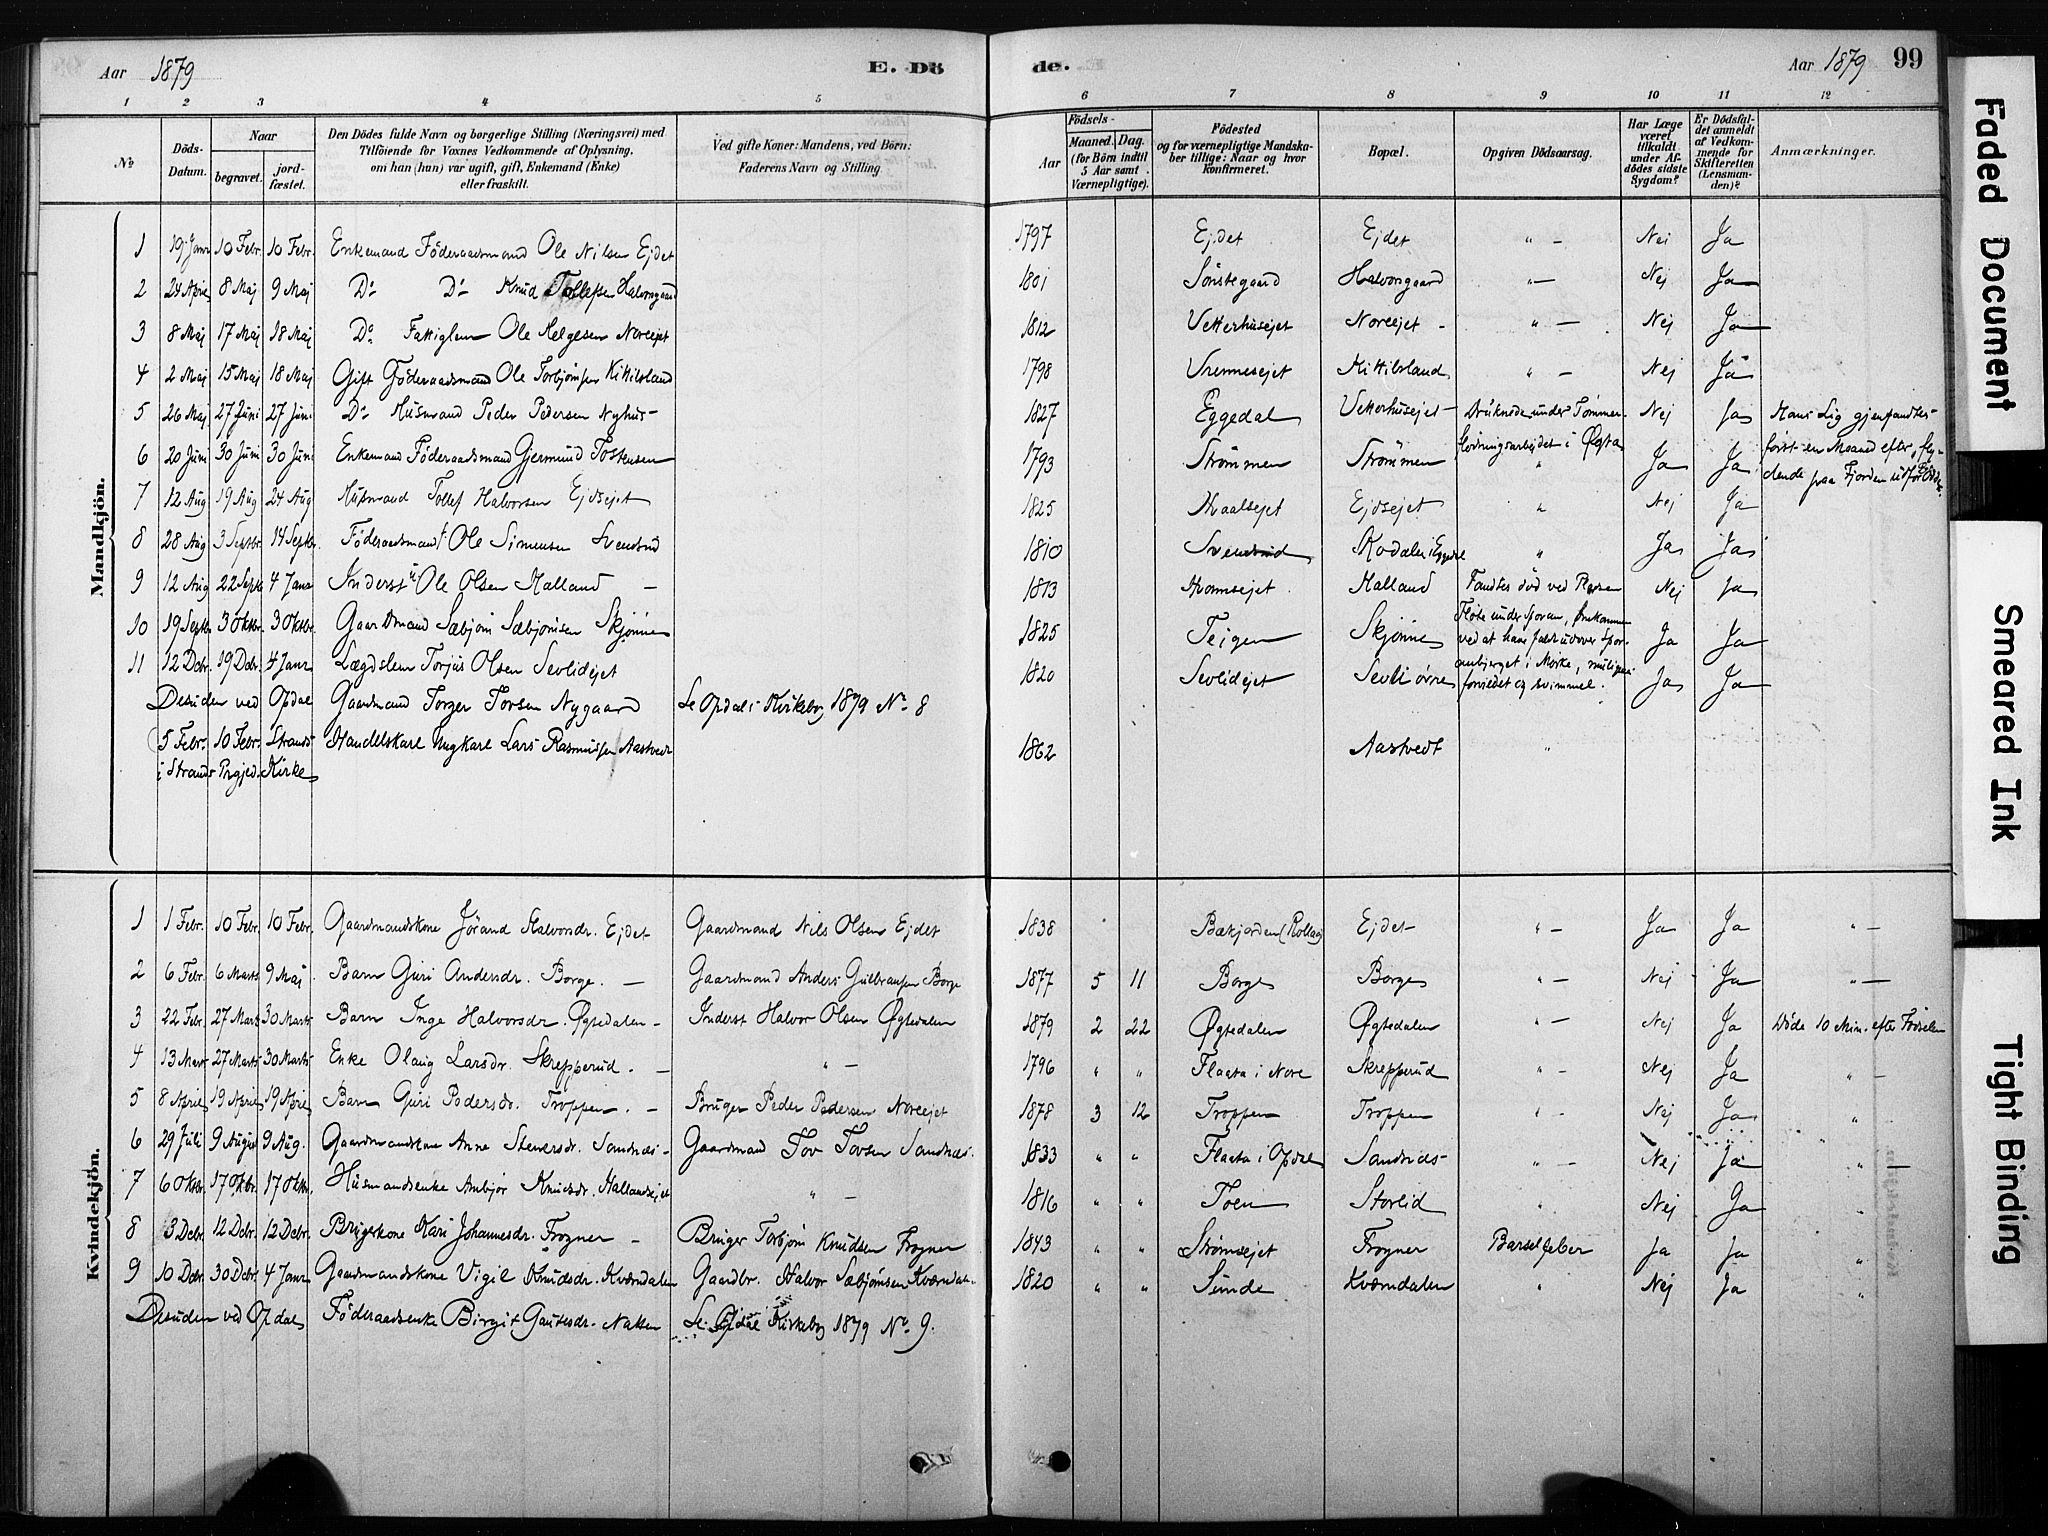 Aar 1879 E. Dö de. Aar 1879 99
1 2 3 4 5 6 7 8 9 10 11 12
No
Döds-Datum.
Naar
begravet. jordfæstet.
Den Dödes fulde Navn og borgerlige Stilling (Næringsvei) med
Tilföiende for Voxnes Vedkommende af Oplysning,
om han (hun) var ugift, gift, Enkemand (Enke)
eller fraskilt.
Ved gifte Koner: Mandens, ved Börn:
Faderens Navn og Stilling.
Aar
Födsels-
Maaned. Dag.
(for Börn indtil
5 Aar samt
Værnepligtige).
Födested
og for værnepligtige Mandska-
ber tillige: Naar og hvor
konfirmeret.
Bopæl.
Opgiven Dödsaarsag.
Har Læge
været
tilkaldt
under Af-
dödes sidste
Sygdom?
Er Dödsfal-
det anmeldt
af Vedkom-
mende for
Skifteretten
(Lensman-
den)?
Anmærkninger.
Mandkjön.
1 19 Janr 10 Febr. 10 Febr. Enkemand Föderaadsmand Ole Nilsen Ejdet 1797 Ejdet Ejdet " — Nei Ja
2 24 April 8 Maj 9 Maj Do Do Knud Tollefsen Halvorsgaard 1801 Sönstegaard Halvorsgaard " — Nej Ja
3 8 Maj 17 Maj 18 Maj Do Fattiglem Ole Helgesen Noreejet 1812 Vetterhusejet Noreejet " — Nej Ja
4 2 Maj 15 Maj 18 Maj Gift Föderaadsmand Ole Torbjörnsen Kittilsland 1798 Vrennesejet Kittilsland " — Nej Ja
5 26 Maj 27 Juni 27 Juni Do Husmand Peder Pedersen Nyhus 1827 Eggedal Vetterhusejet Druknede under Tømmer- Nej Ja Hans Lig gjenfandtes
flödningsarbejdet i Øgta først en Maaned efter, fly-
6 20 Juni 30 Juni 30 Juni Enkemand Föderaadsmand Gjermund Tostensen 1793 Strömmen Strömmen " Ja Ja dende paa Fjorden
7 12 Aug 19 Aug 24 Aug Husmand Tollef Halvorsen Ejdsejet 1825 Ejdsejet " Nej Ja
8 28 Aug 3 Septbr. 14 Septbr. Föderaadsmand Ole Simensen Svensrud 1810 Svensrud Skodalen i Eggedal " Ja Ja
9 12 Aug 22 Septbr 4 Janr Inderst Ole Olsen Halland — 1813 Halland Fandtes död ved Nej Ja
10 19 Septbr 3 Oktbr. 3 Oktbr. Gaardmand Sæbjörn Sæbjörnsen Skjönne 1825 Teigen Skjönne ved at have faldt udover Ja Ja
i Mørke, muligens
11 12 Dcbr. 19 Dcbr. 4 Janr Lægdslem Torjus Olsen Sevlidejet 1820 Sevlidejet Sevli övre forvildet og svimmel. Ja Ja
Desuden ved Opdal Gaardmand Torger Torsen Nygaard Se Opdal i Kirkebog 1879 No 8
5 Febr. 10 Febr. Strands Handelskarl Ungkarl Lars Rasmussen Aastvedt 1862 Aastvedt "
i Strands Prgjed. Kirke
Kvindekjön.
1 1 Febr. 10 Febr. 10 Febr. Gaardmandskone Jörand Halvorsdr. Ejdet Gaardmand Nils Olsen Ejdet 1838 Bækjorden (Rollag) Ejdet " — Ja Ja " —
2 6 Febr. 6 Marts 9 Maj Barn Guri Andersdr. Borge. — Gaardmand Anders Gulbransen Borge 1877 5 11 Borge Borge " — Nej Ja " —
3 22 Febr. 27 Marts 30 Marts Barn Inge Halvorsdr. Øgtedalen — Inderst Halvor Olsen Øgtedalen 1879 2 22 Øgtedalen Øgtedalen " — Nej Ja Döde 10 Min. efter Födselen
4 13 Marts 27 Marts 30 Marts Enke Olaug Larsdr. Skrepperud. — " — 1796 " " Flaata i Nore Skrepperud " — Nej Ja " —
5 8 April 19 April 19 April Barn Guri Pedersdr. Troppen. — Bruger Peder Pedersen Noreejet 1878 3 12 Troppen Troppen " — Nej Ja "
6 29 Juli 9 August 9 Aug. Gaardmandskone Anne Stenersdr. Sandnæs Gaardmand Tov Tovsen Sandnæs. 1833 " " Flaata i Opdal Sandnæs " — Nej Ja " —
7 6 Oktbr. 17 Oktbr. 17 Oktbr. Husmandsenke Anbjør Knudsdr. Hallandsejet " — 1816 " " Toen Storlid " Nej Ja "
8 3 Dcbr. 12 Dcbr. 12 Dcbr. Brugerkone Kari Johannesdr. Frogner — Bruger Torbjörn Knudsen Frogner 1843 " " Strömsejet Frogner Barselfeber Ja Ja "
9 10 Dcbr. 30 Dcbr. 4 Janr Gaardmandskone Vigil Knudsdr. Kværndalen Gaardbr. Halvor Sæbjörnsen Kværndalen 1820 " " Sünde Kværndalen " Nej Ja "
Desuden ved Opdal Föderaadsenke Birgit Gautesdr. Nakken Se Opdal Kirkebog 1879 No 9.
Faded Document
Smeared Ink
Tight Binding